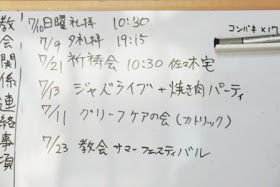 教会関係連絡事項
7/10日曜礼拝 10:30
7/9 夕礼拝 19:15
7/21 祈祷会 10:30 佐々木宅
7/13 ジャズライブ+焼き肉パーティ
7/11 グリーフケアの会(カトリック)
7/23 教会サマーフェスティバル
コンパネ×17